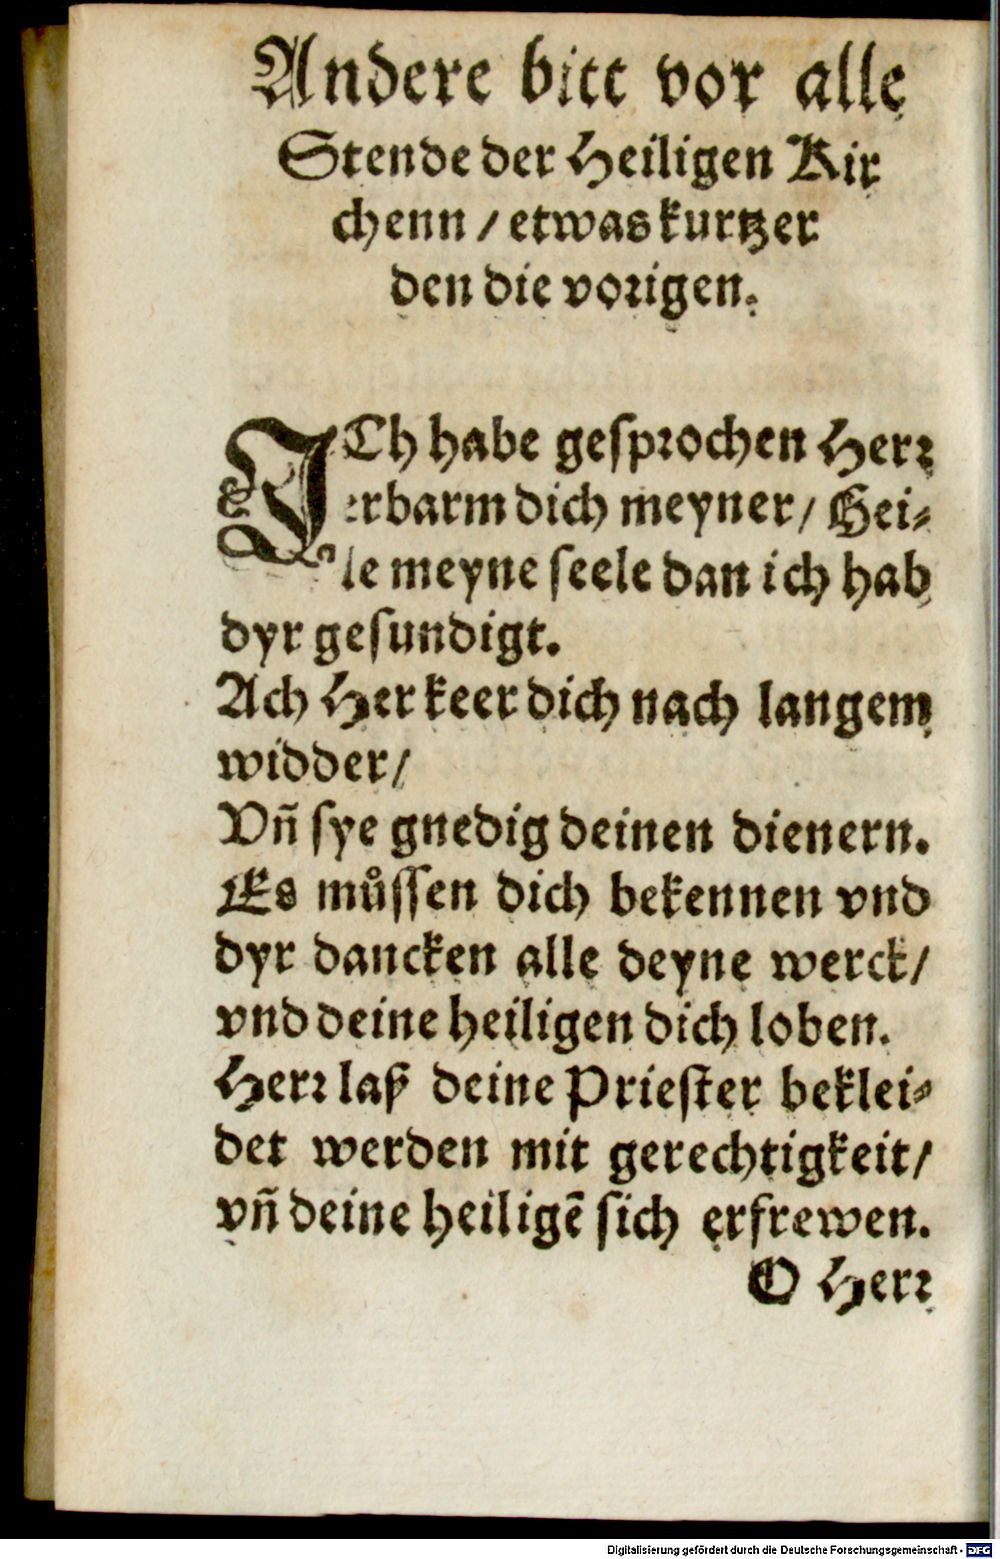 Andere bitt vor alle
Stende der Heiligen Kir
chenn / etwas kurtzer
den die vorigen.
ICh habe gesprochen Herr
erbarm dich meyner / Hei-
le meyne seele dan ich hab
dyr gesundigt.
Ach Her keer dich nach langem
widder /
Vñ sye gnedig deinen dienern.
Es můssen dich bekennen vnd
dyr dancken alle deyne werck /
vnd deine heiligen dich loben.
Herr laß deine Priester beklei-
det werden mit gerechtigkeit /
vñ deine heiligẽ sich erfrewen.
O Herr
Digitalisierung gefördert durch die Deutsche Forschungsgemeinschaft - DFG